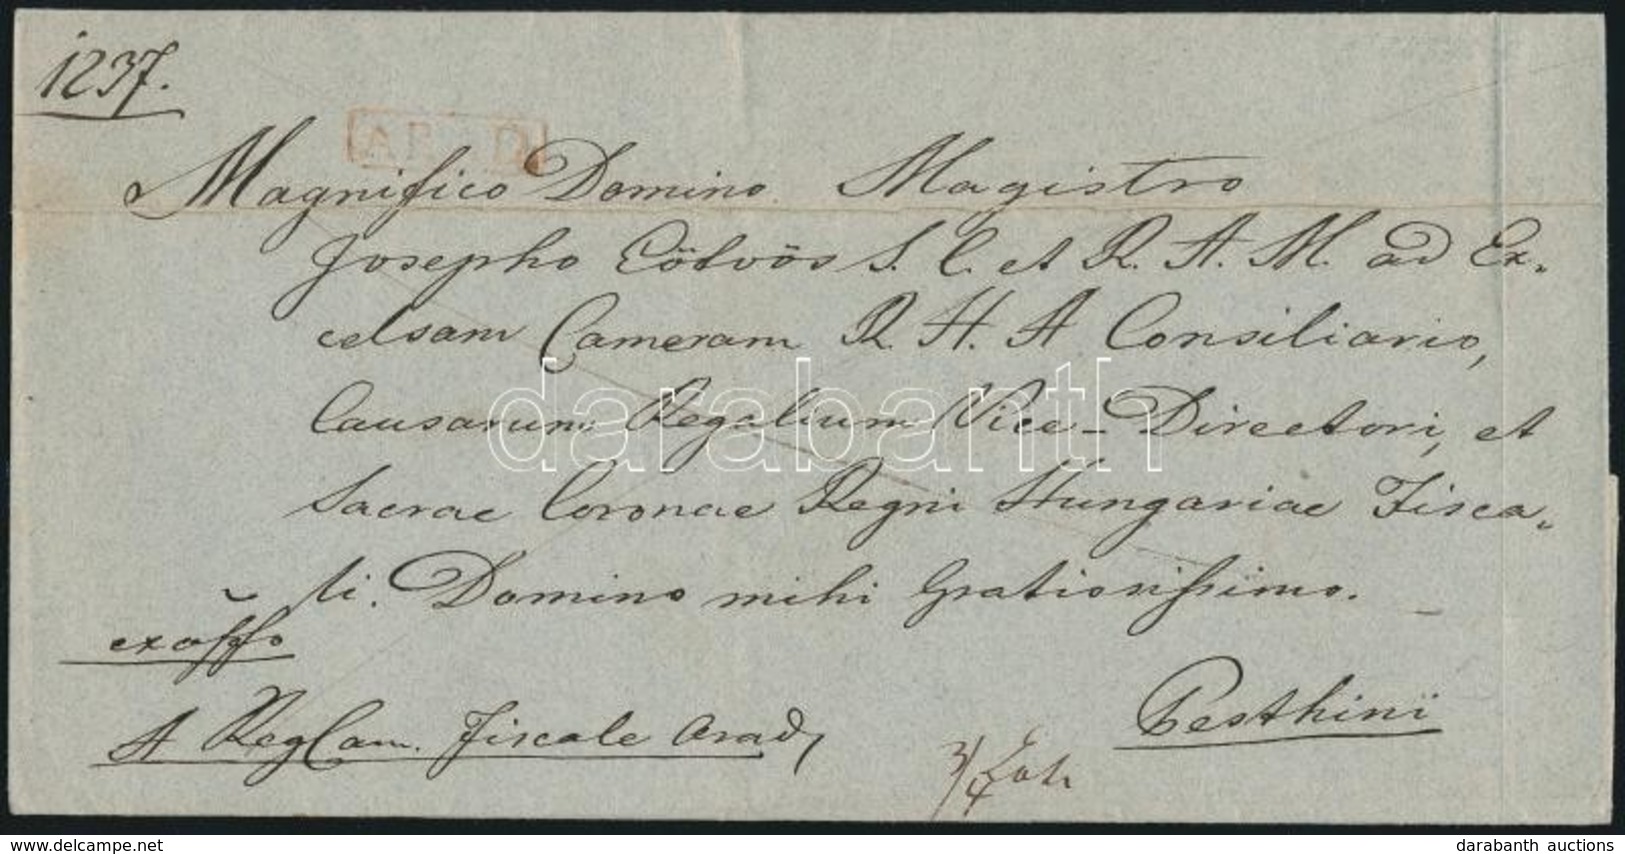 1237.
ARAD
Magnifico Domino Magistro
Josepho Eötvös S. C. et R. A. M. ad Ex-
celsam Cameram R. H. A Consiliario,
Causarum Regalium Vice-Directori, et
Sacrae Coronae Regni Hungariae Fisca-
li. Domino mihi Gratiosissimo.
ex offo
A Reg Cam. Fiscale Arad,
Pesthini
3/4 Loth
darabanth
delcampe.net
darabanth auctions